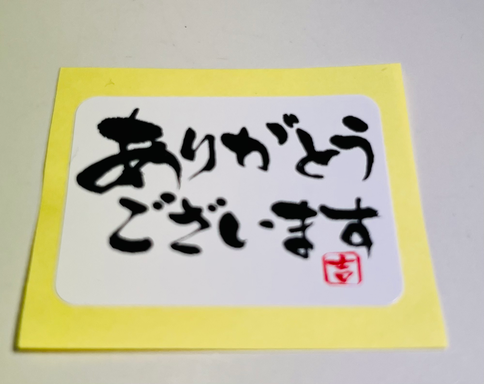 ありがとう
ございます
吉